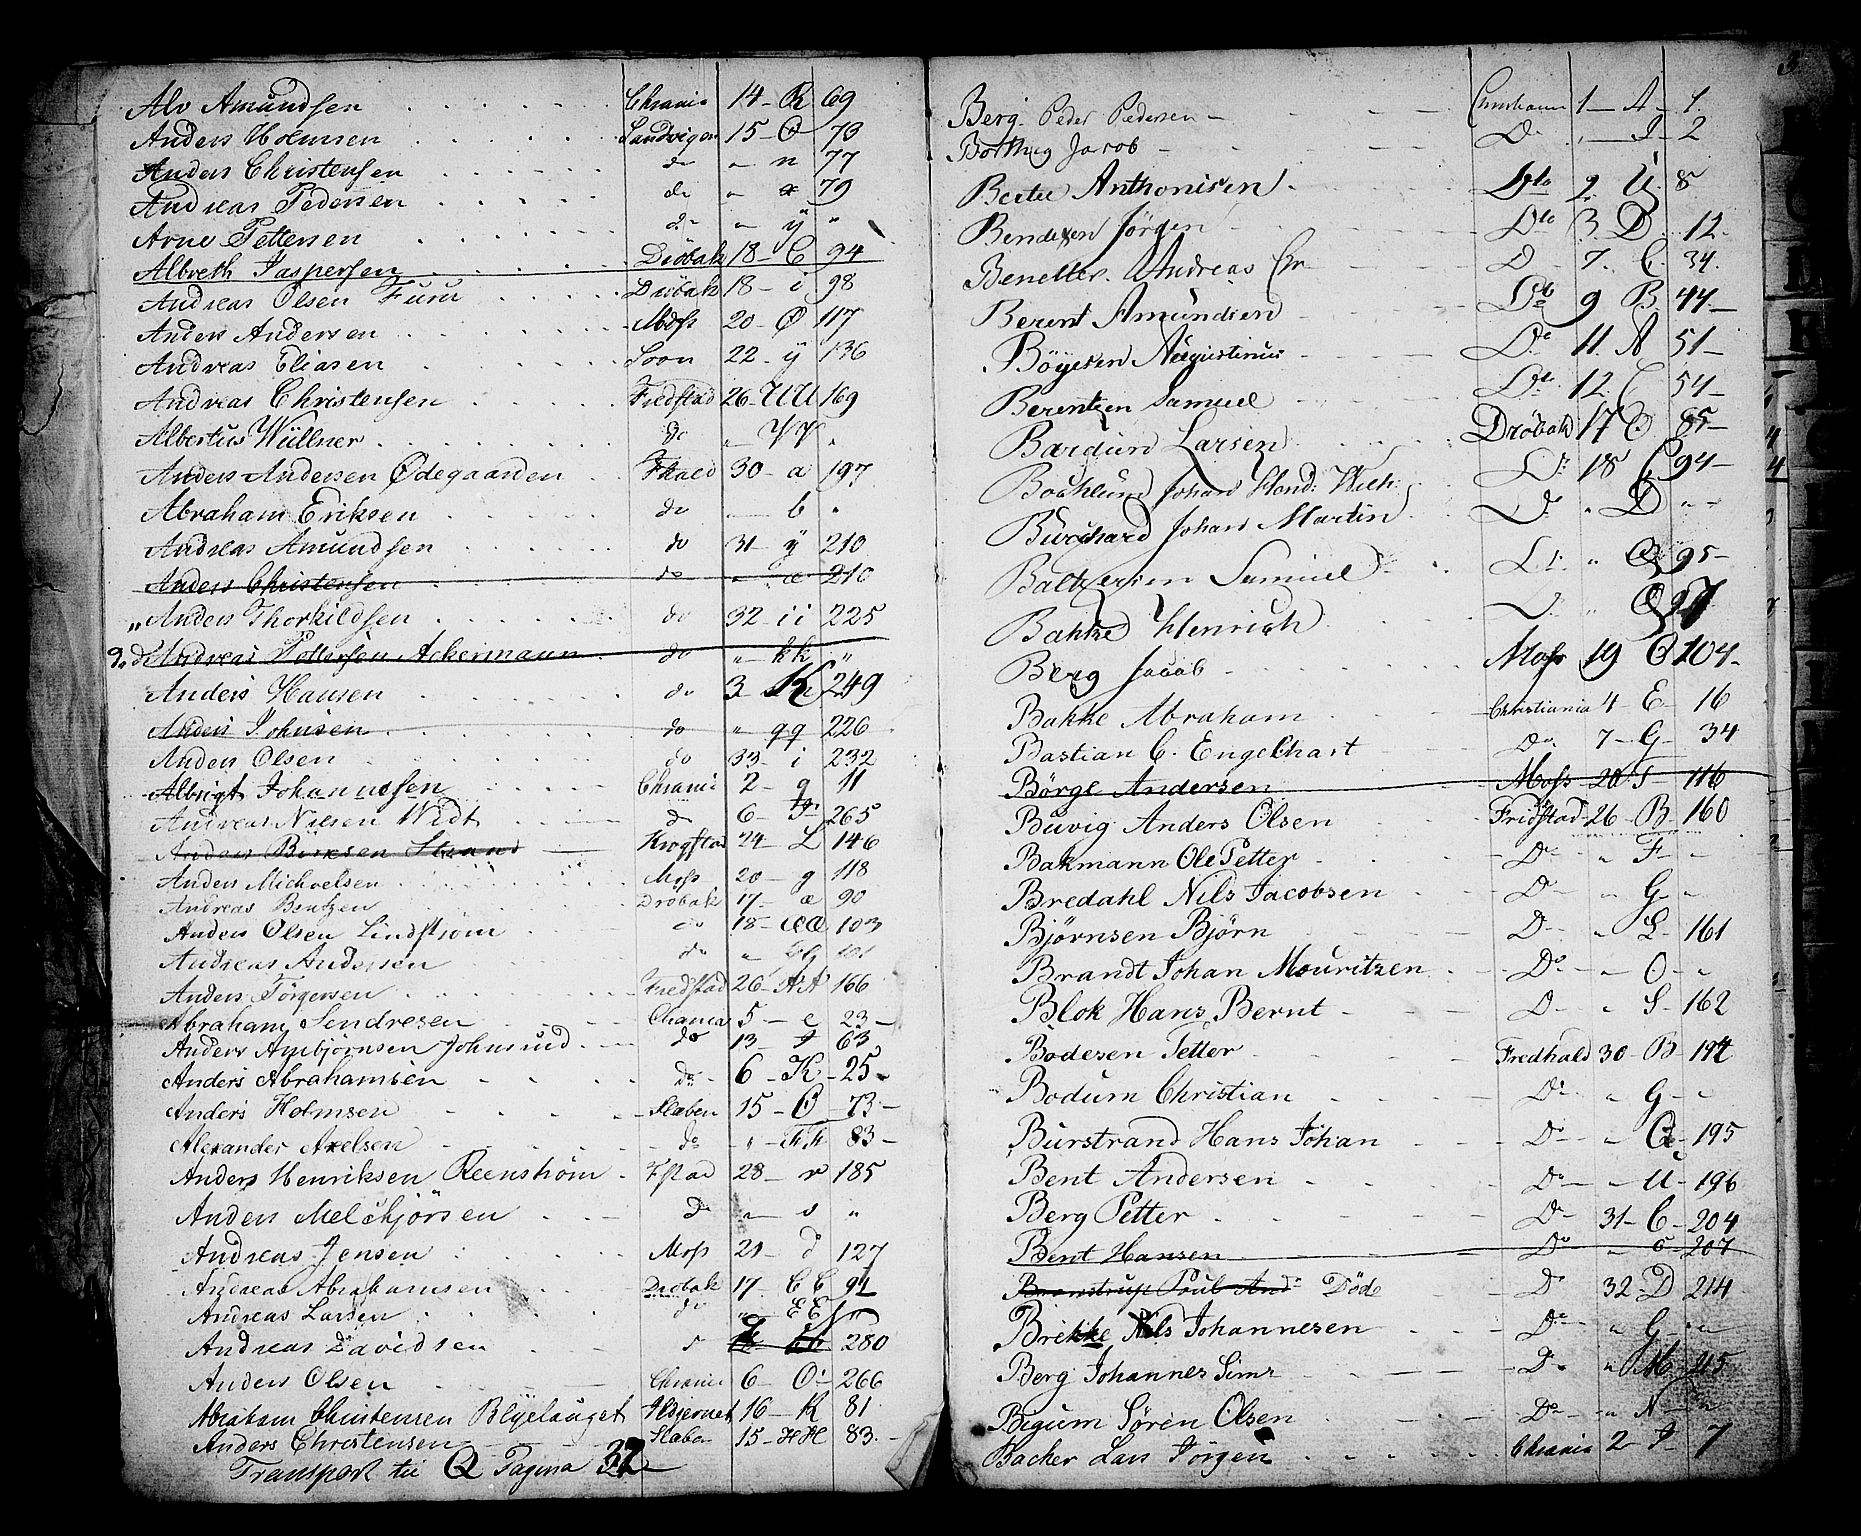 Alv Amundsen Chrania 14 R 69
Anders Holmsen Sandvigen 15 O 73
Anders Christensen do " n 77
Andreas Pedersen do " æ 79
Arne Pettersen do " ÿ "
Albreth Jaspersen Dröbak 18 C 94
Andreas Olsen Furu Dröbak 18 i 98
Anders Andersen Moss 20 Ø 117
Andreas Eliasen Soon 22 ÿ 136
Andreas Christensen Fredstad 26 UU 169
Albertus Wüllner do " YY "
Anders Andersen Ødegaarden Fhald 30 a 197
Abraham Eriksen do " b "
Andreas Amundsen do 31 ÿ 210
Anders Christensen do " æ 210
" Anders Thorkildsen do 32 ii 225
Andreas Pettersen Ackermann do " kk "
Anders Hansen do 3 K 249
Anders Johnsen do " qq 226
Anders Olsen do 33 i 232
Albrigt Johannessen Chrania 2 q 11
Andreas Nilsen Widt do 6 265
Anders Strand Krogstad 24 L 146
Anders Michaelsen Moss 20 g 118
Andreas Bentzen Dröbak 17 æ 90
Anders Olsen Lindstrøm do 18 ææ 103
Andreas Andersen do "
Anders Törgersen Fredstad 26 AA 166
Abraham Sendresen Chrania 5 e 23
Anders Ambjörnsen Johnsrud do 13 63
Anders Abrahamsen do 6 K 25
Anders Holmsen Slæben 15 O 73
Alexander Axelsen do " FF 83
Anders Henriksen Reenström Fstad 28 r 185
Anders Melchjörsen do " v "
Andreas Jensen Moss 21 d 127
Andreas Abrahamsen Dröbak 17 CC 91
Andreas Larsen do " EE
Andreas Davidsen 280
Anders Olsen Chrania 6 O 266
Abraham Christensen Blylauget 16 K 81
Anders Christensen Slæben 15 HH 83
Transport til Q Pagina 32
3
Berg Peder Pedersen Christiania 1 A 1
Borthig Jacob Do " I 2
Bertel Anthonisen Dto 2 U 8
Bendixen Jörgen Dto 3 D 12
Benetter Andreas Chr Do 7 C 34
Berent Amundsen Do 9 B 44
Böyesen Augustinus Do 11 A 51
Berentzen Samuel Do 12 C 54
Bardun Larsen Dröbak 17 O 85
Bochlund Johan Hend: Wich: Do 18 C 94
Burchard Johan Martin Do " D "
Baltzersen Samuel Do " 95
Bakke Henrich Do " 97
Berg Jacob Moss 19 C 104
Bakke Abraham Christiania 4 E 16
Bastian C. Engelhart Do 7 G 34
Börge Andersen Moss 20 T 116
Buvig Anders Olsen Fridstad 26 B 160
Bakmann Ole Petter Do " F "
Bredahl Nils Jacobsen Do " G "
Björnsen Björn Do " L 161
Brandt Johan Mouritzen Do " O "
Blok Hans Bernt Do " S 162
Bodesen Petter Fredhald 30 B 194
Bodum Christian Do " G "
Burstrand Hans Johan Do " 195
Bent Andersen Do " U 196
Berg Petter Do 31 C 204
Bent Hansen Do " 207
Brønstrup Poul And: Död Do 32 D 214
Brikke Nils Johannesen Do " G "
Berg Johannes Sims Do " M 215
Begum Sören Olsen Do " N "
Backer Lars Jörgen Chrania 2 I 7